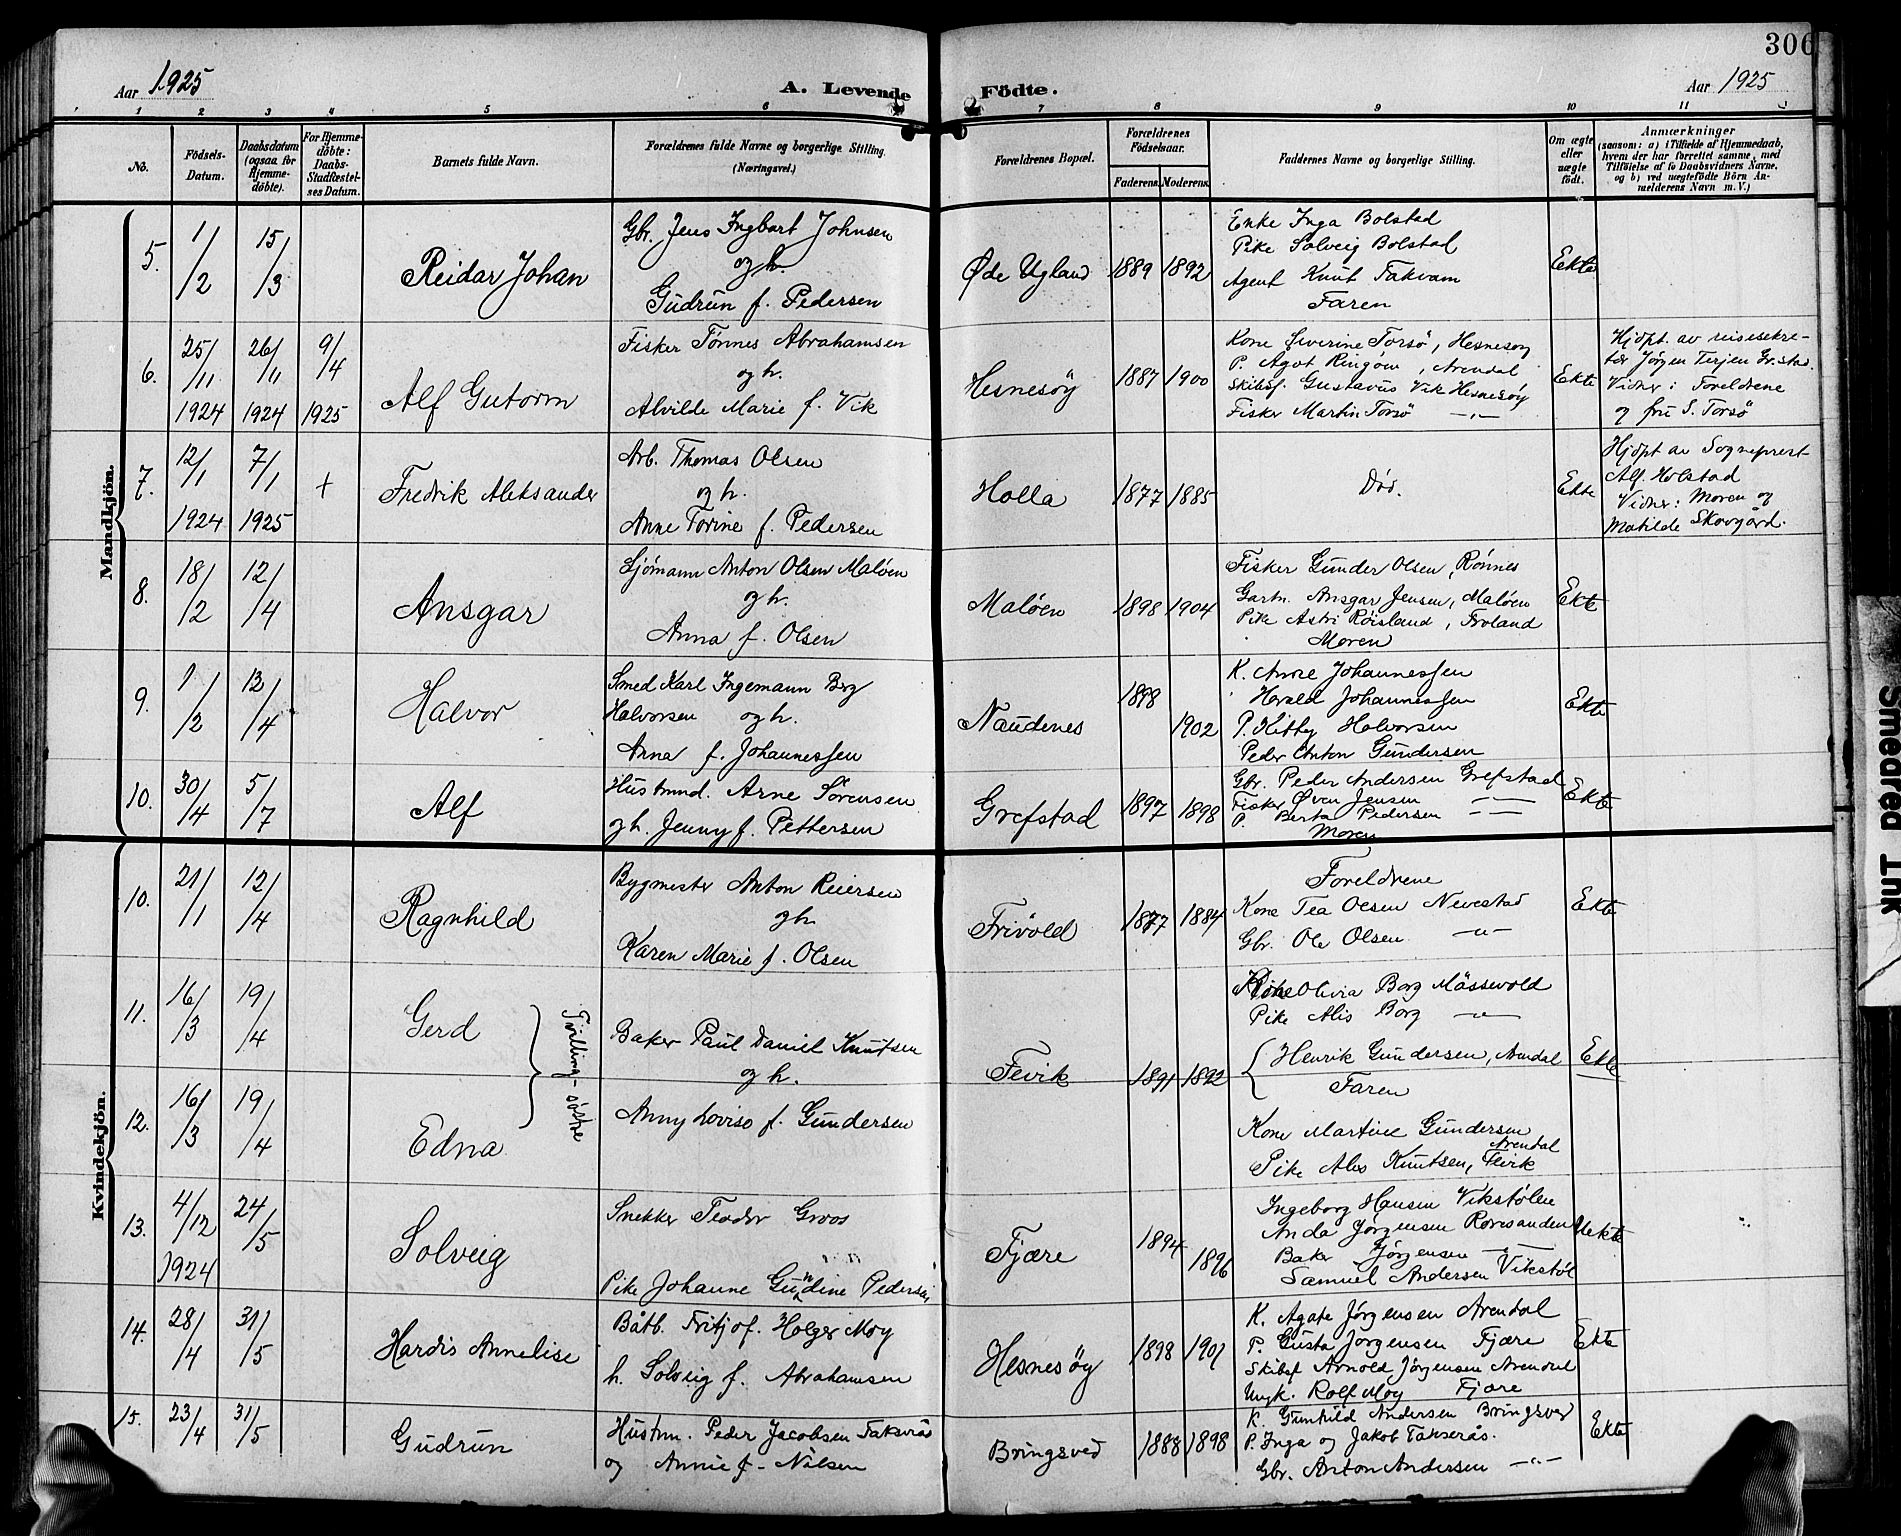 306
Aar 1925
A. Levende Födte.
Aar 1925
1 2 3 4 5 6 7 8 9 10 11
No.
Födsels-Datum.
Daabsdatum (ogsaa for Hjemme-döbte).
For Hjemme-döbte: Daabs-Stadfæstel-ses Datum.
Barnets fulde Navn.
Forældrenes fulde Navne og borgerlige Stilling.
(Næringsvei.)
Forældrenes Bopæl.
Forældrenes Födselsaar.
Faderens. Moderens.
Faddernes Navne og borgerlige Stilling.
Om ægte eller uægte födt.
Anmærkninger
(saasom: a) i Tilfælde af Hjemmedaab,
hvem der har forrettet samme, med
Tilföielse af to Daabsvidners Navne,
og b) ved uægtefödte Börn An-
melderens Navn m. V.)
Mandkjön.
5. 1/2 15/3 Reidar Johan
Gbr. Jens Ingbart Johnsen
og h.
Gudrun f. Pedersen
Øde Ugland 1889 1892
Enke Inga Bolstad
Pike Solveig Bolstad
Agent Knut Fakvam
Faren
Ekte
6. 25/11 1924 26/11 1924 9/4 1925 Alf Gutorm
Fisker Tönnes Abrahamsen
og h.
Alvilde Marie f. Vik
Hesnesöy 1887 1900
Kone Severine Torsö, Hesnesöy
P. Agot Ringöm, Arendal
Skibsf. Gustavus Vik Hesnesöy
Fisker Martin Torsö —„—
Ekte
Hjdpt. av reisesekre-
tær Jörgen Terjesen Gr.stad.
Vidner: Foreldrene
og fru S. Torsö
7. 12/1 1924 7/1 1925 + Fredrik Aleksander
Arb. Thomas Olsen
og h.
Anne Torine f. Pedersen
Holla 1877 1885
Död.
Ekte
Hjdpt av Sogneprest
Alf. Holstad
Vidner: Moren og
Matilde Skovgård.
8. 18/2 12/4 Ansgar
Sjömann Anton Olsen Malöen
og h.
Anna f. Olsen
Malöen 1898 1904
Fisker Gunder Olsen, Rønnes
Gartn. Ansgar Jensen, Malöen
Pike Astri Röisland, Froland
Moren
Ekte
9. 1/2 13/4 Halvor
Smed Karl Ingemann Berg
Halvorsen og h.
Anna f. Johannessen
Naudenes 1898 1902
K. Anne Johannessen
Herald Johannessen
P. Kitty Halvorsen
Peder Anton Gundersen
Ekte
10. 30/4 5/7 Alf
Hustmnd. Arne Sörensen
og h. Jenny f. Pettersen
Grefstad 1897 1898
Gbr. Peder Andersen Grefstad
Fisker Öven Jensen —„—
P. Berta Pedersen —„—
Moren
Ekte
Kvindekjön.
10. 21/1 12/4 Ragnhild
Bygmester Anton Reiersen
og h.
Karen Marie f. Olsen
Frivold 1877 1884
Foreldrene
Kone Tea Olsen Nevestad
Gbr. Ole Olsen —„—
Ekte
11. 16/3 19/4 Gerd
Tvilling-söstre
Baker Paul Daniel Knutsen
og h.
Anny Loviso f. Gundersen
Fevik 1891 1892
Olivia Borg Mässevold
Pike Alis Borg —„—
Henrik Gundersen, Arendal
Faren
Ekte
12. 16/3 19/4 Edna
Kone Martine Gundersen
Arendal
Pike Alis Knutsen, Fevik
13. 4/12 1924 24/5 Solveig
Snekker Teodor Groos
Pike Johanne Gundine Pedersen
Fjære 1894 1896
Ingeborg Hansen Vikstölen
Anda Jørgensen Roresanden
Baker Jørgensen —„—
Samuel Andersen Vikstöl
Uekte
14. 28/4 31/5 Hardis Annelise
Båtb. Fritjof. Holger Moy
h. Solveig f. Abrahamsen
Hesnesøy 1898 1901
K. Agate Jørgensen Arendal
P. Gusta Jørgensen Fjære
Skibsf Arnold Jørgensen Arendal
Ungk. Rolf Moy Fjære
Ekte
15. 23/4 31/5 Gudrun
Hustmn. Peder Jacobsen Takserås
og Annie f. Nilsen
Bringsved 1888 1898
K. Gunhild Andersen Bringsved
P. Inga og Jakob Takserås.
Gbr. Anton Andersen —„—
Ekte
Smeared Ink